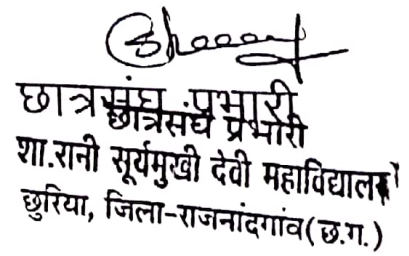 छात्रसंघ प्रभारी
छात्रसंघ प्रभारी
शा.रानी सूर्यमुखी देवी महाविद्यालय
छुरिया, जिला-राजनांदगांव(छ.ग.)